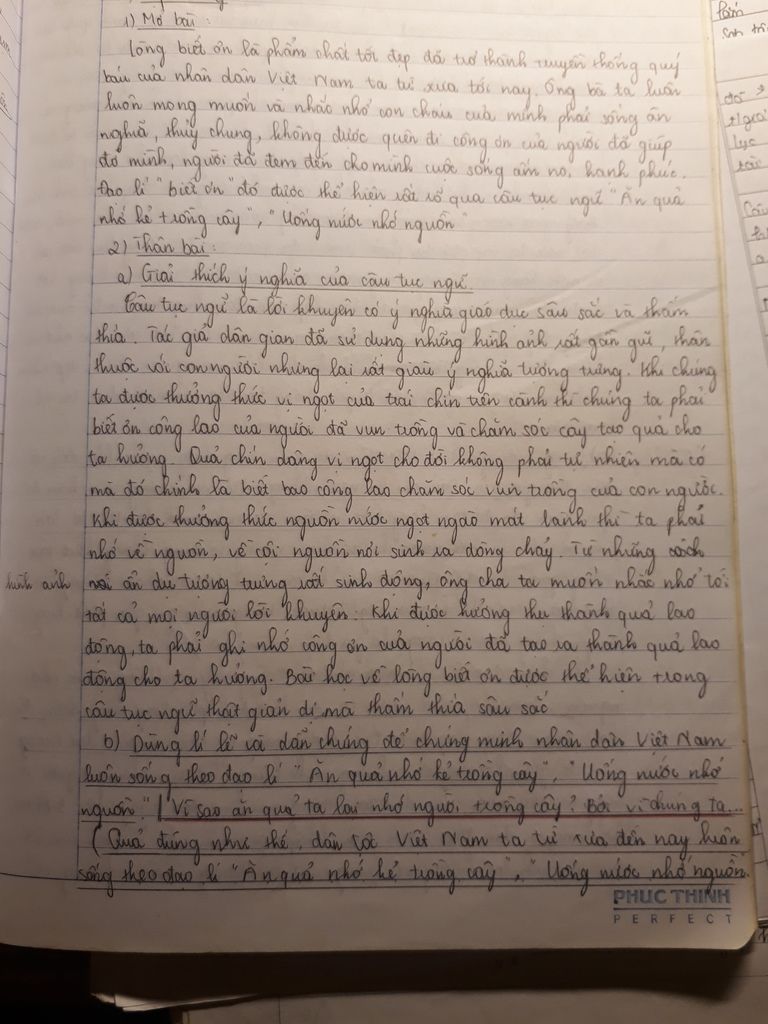 1) Mở bài:
Lòng biết ơn là phẩm chất tốt đẹp đã trở thành truyền thống quý
báu của nhân dân Việt Nam ta từ xưa tới nay. Ông bà ta luôn
luôn mong muốn và nhắc nhở con cháu của mình phải sống ân
nghĩa, thủy chung, không được quên đi công ơn của người đã giúp
đỡ mình, người đã đem đến cho mình cuộc sống ấm no, hạnh phúc.
Đạo lí "biết ơn" đó được thể hiện rất rõ qua câu tục ngữ "Ăn quả
nhớ kẻ trồng cây", "Uống nước nhớ nguồn"
2) Thân bài:
a) Giải thích ý nghĩa của câu tục ngữ.
Câu tục ngữ là lời khuyên có ý nghĩa giáo dục sâu sắc và thấm
thía. Tác giả dân gian đã sử dụng những hình ảnh rất gần gũi, thân
thuộc với con người nhưng lại rất giàu ý nghĩa tượng trưng. Khi chúng
ta được thưởng thức vị ngọt của trái chín trên cành thì chúng ta phải
biết ơn công lao của người đã vun trồng và chăm sóc cây tạo quả cho
ta hưởng. Quả chín dâng vị ngọt cho đời không phải tự nhiên mà có
mà đó chính là biết bao công lao chăm sóc vun trồng của con người.
Khi được thưởng thức nguồn nước ngọt ngào mát lành thì ta phải
nhớ về nguồn, về cội nguồn nơi sinh ra dòng chảy. Từ những
hình ảnh ẩn dụ tượng trưng rất sinh động, ông cha ta muốn nhắc nhở tới
tất cả mọi người lời khuyên: Khi được hưởng thụ thành quả lao
động, ta phải ghi nhớ công ơn của người đã tạo ra thành quả lao
động cho ta hưởng. Bài học về lòng biết ơn được thể hiện trong
câu tục ngữ thật giản dị mà thấm thía sâu sắc
b) Dùng lí lẽ và dẫn chứng để chứng minh nhân dân Việt Nam
luôn sống theo đạo lí "Ăn quả nhớ kẻ trồng cây", "Uống nước nhớ
nguồn". Vì sao ăn quả ta lại nhớ người trồng cây? Bởi vì chúng ta...
(Quả đúng như thế, dân tộc Việt Nam ta từ xưa đến nay luôn
sống theo đạo lí "Ăn quả nhớ kẻ trồng cây", "Uống nước nhớ nguồn".
PHUC THINH
PERFECT